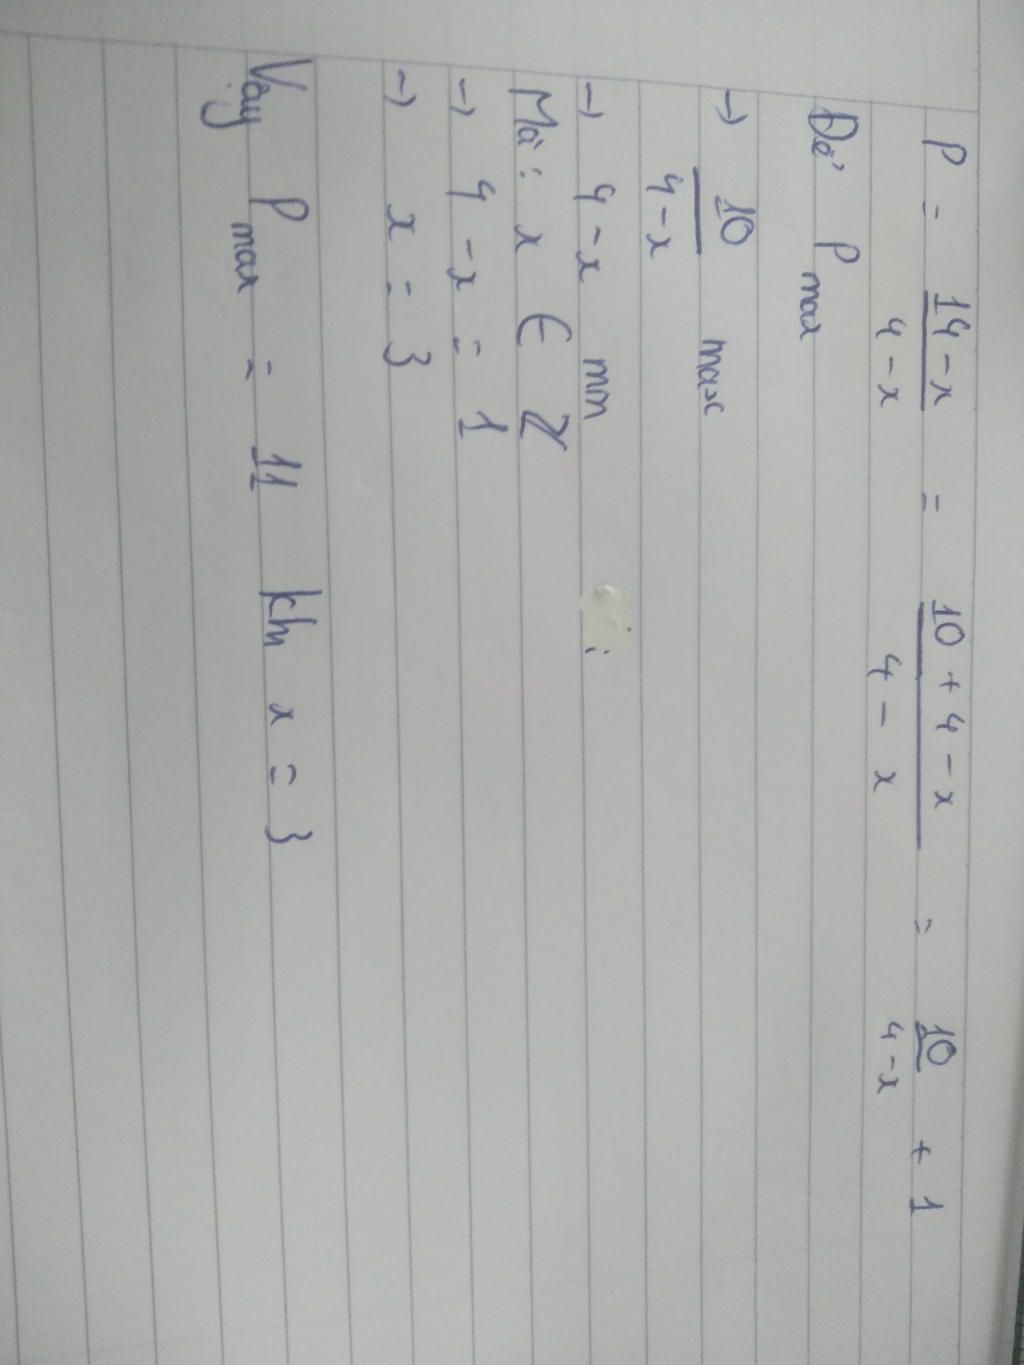 P = \frac{14-x}{4-x} = \frac{10+4-x}{4-x} = \frac{10}{4-x} + 1
Để P max
→ \frac{10}{4-x} max
→ 4-x min
Mà: x ∈ Z
→ 4-x = 1
→ x = 3
Vậy P max = 11 khi x = 3